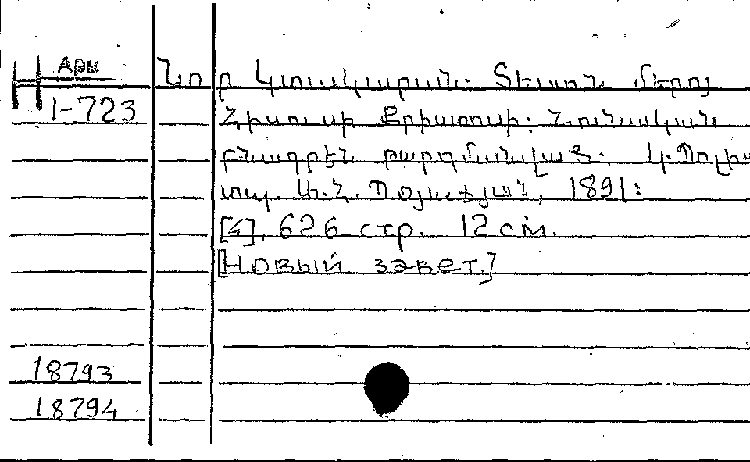 Арм
Н Նոր Կտակարան. Տեառն մերոյ
1-723 Յիսուսի Քրիստոսի: Յունական
բնագրէն թարգմանված. Կ.Պոլիս
տպ. Ա.Յ. Պօյաճյան, 1891:
[4], 626 стр. 12 см.
[Новый завет.]
18793
18794